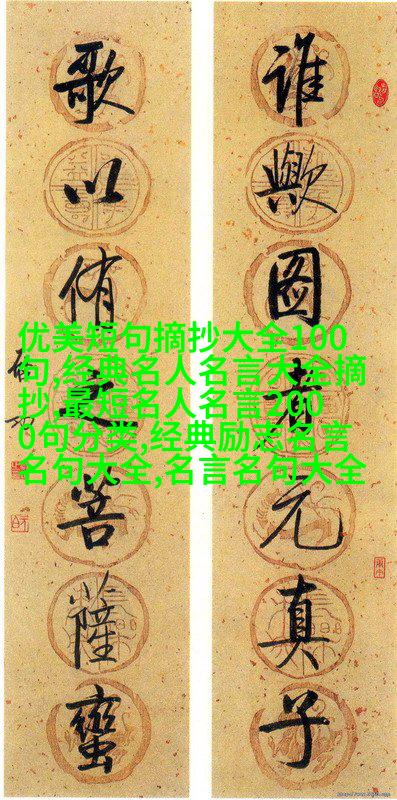 谁歟图者元真子
歌以侑菩薩蠻
优美短句摘抄大全100
句,经典名人名言大全摘
抄,最短名人名言200
0句分类,经典励志名言
名句大全,名言名句大全